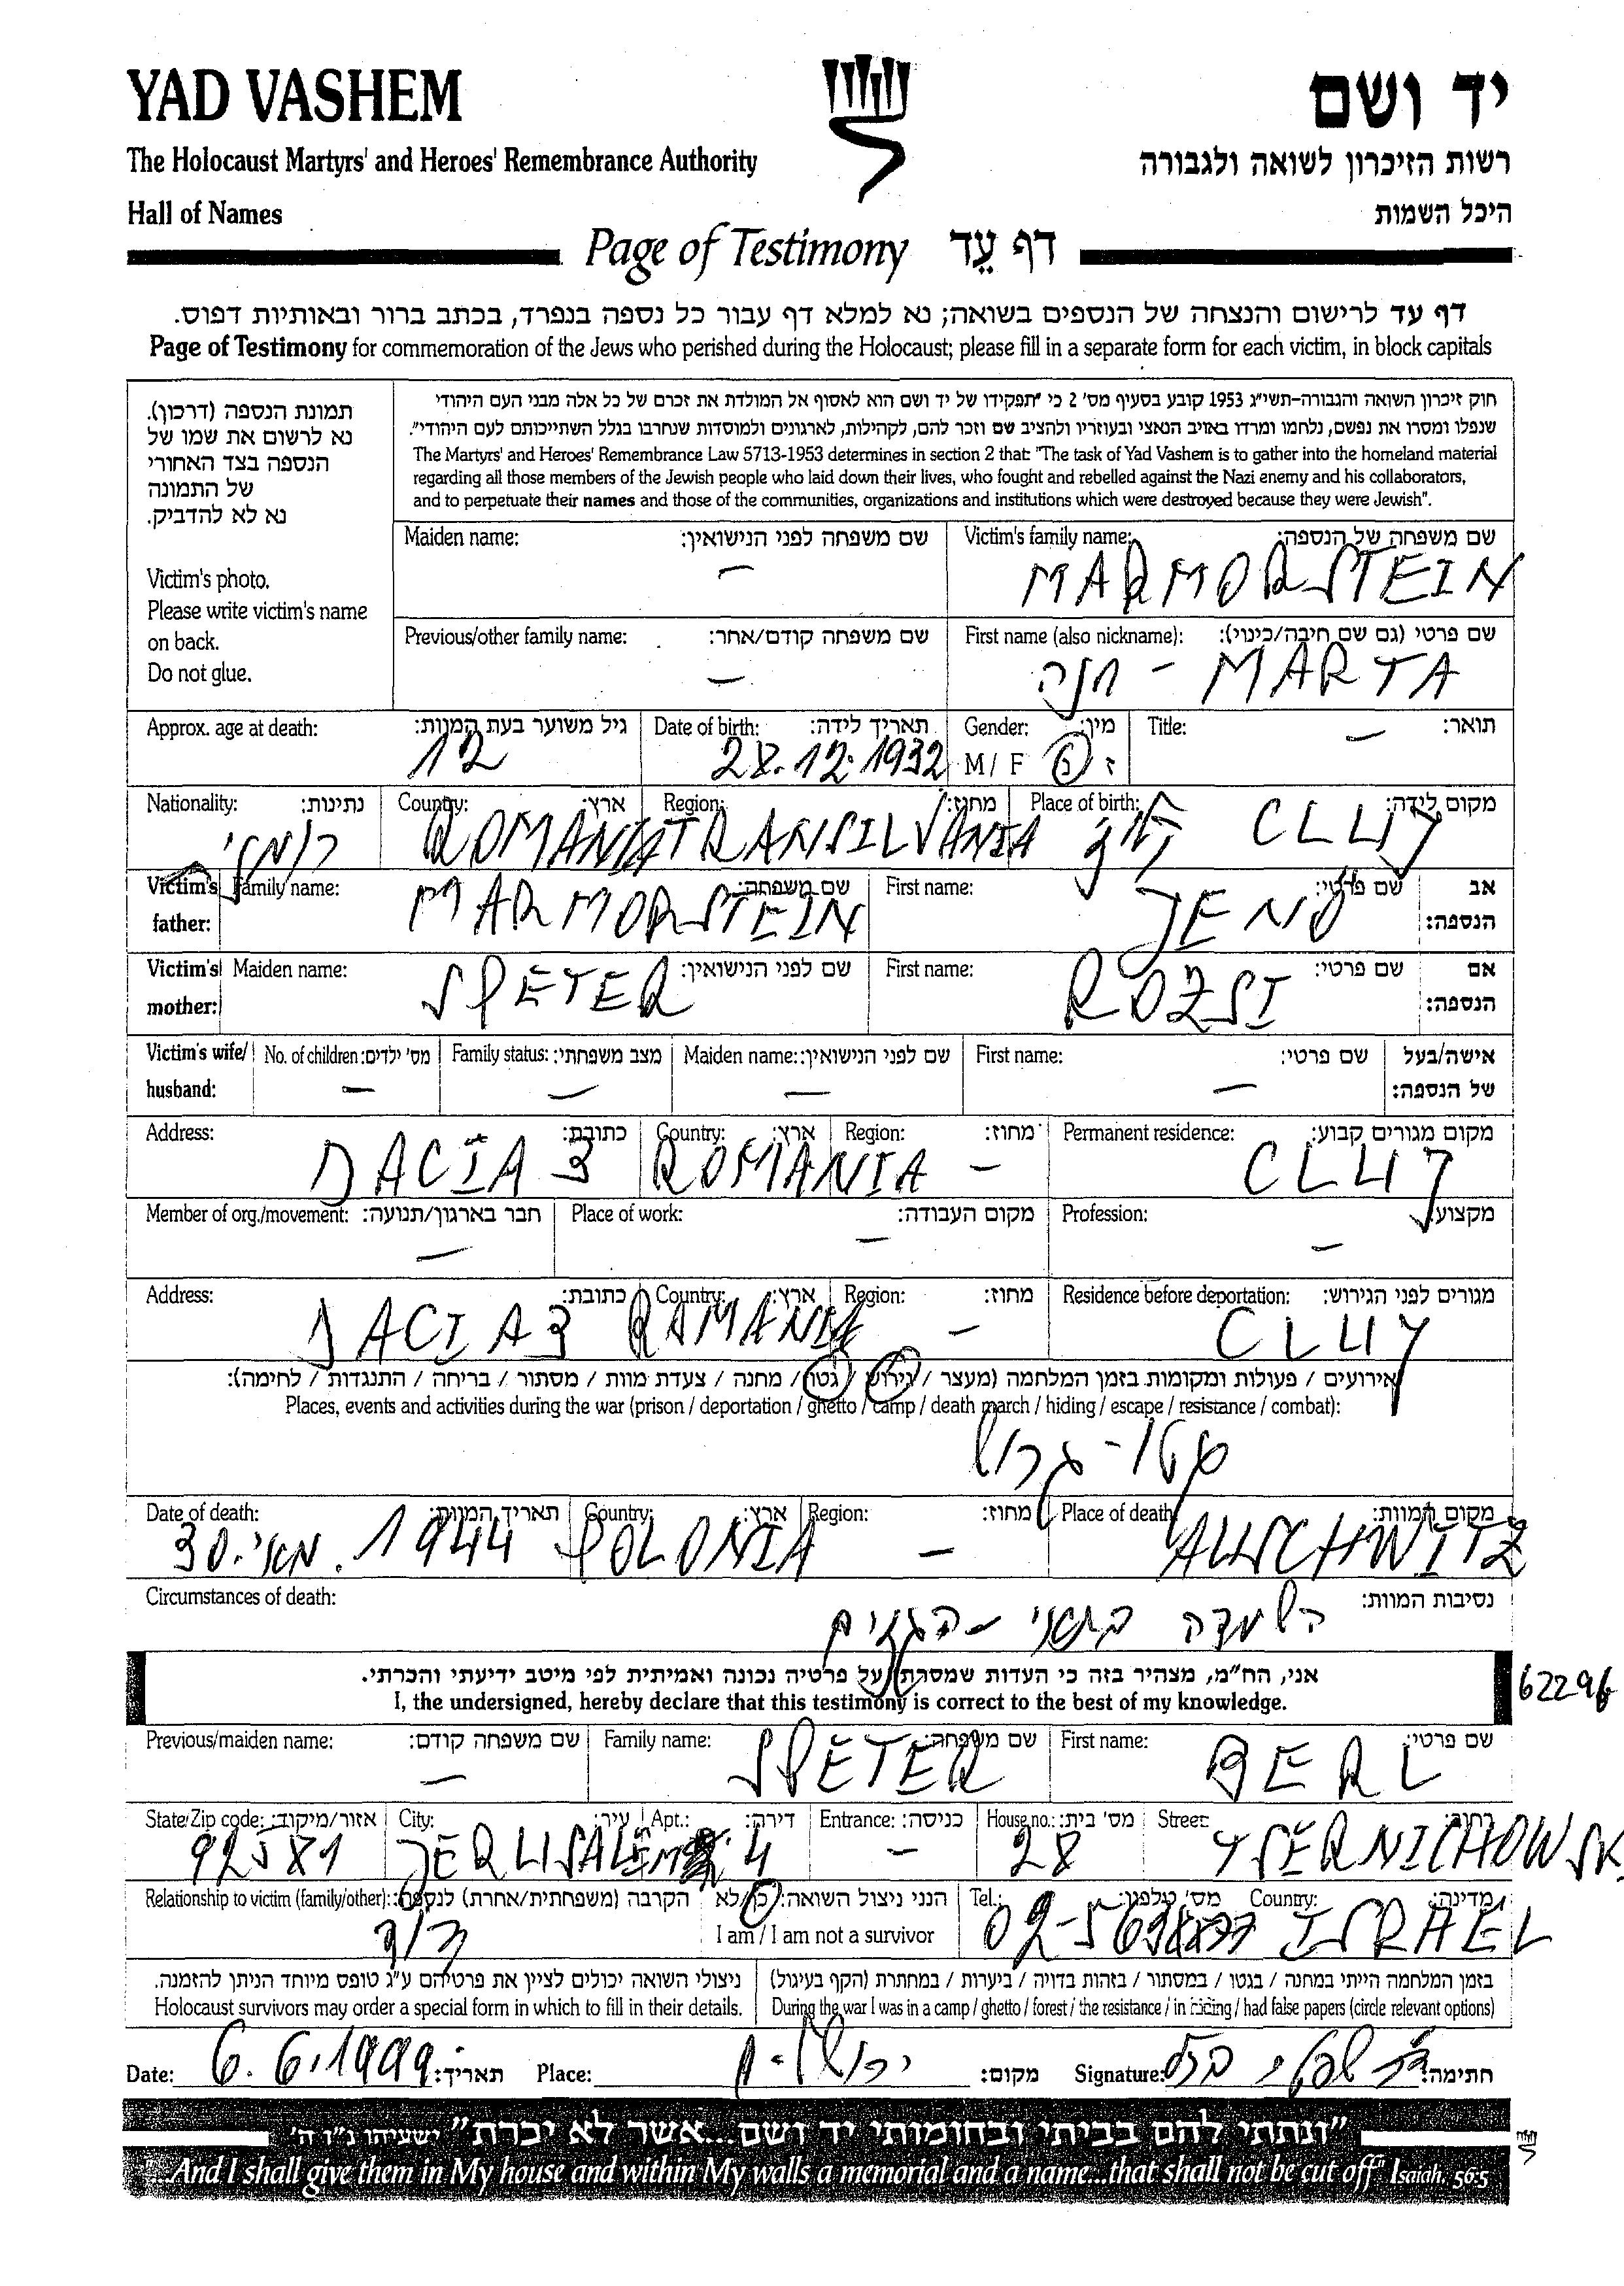 YAD VASHEM
יד ושם
The Holocaust Martyrs' and Heroes' Remembrance Authority
רשות הזיכרון לשואה ולגבורה
Hall of Names
היכל השמות
Page of Testimony דף עֵד
דף עד לרישום והנצחה של הנספים בשואה; נא למלא דף עבור כל נספה בנפרד, בכתב ברור ובאותיות דפוס.
Page of Testimony for commemoration of the Jews who perished during the Holocaust; please fill in a separate form for each victim, in block capitals
תמונת הנספה (דרכון).
נא לרשום את שמו של
הנספה בצד האחורי
של התמונה
נא לא להדביק.
Victim's photo.
Please write victim's name
on back.
Do not glue.
חוק זיכרון השואה והגבורה-תשי״ג 1953 קובע בסעיף מס' 2 כי "תפקידו של יד ושם הוא לאסוף אל המולדת את זכרם של כל אלה מבני העם היהודי
שנפלו ומסרו את נפשם, נלחמו ומרדו באויב הנאצי ובעוזריו ולהציב שם וזכר להם, לקהילות, לארגונים ולמוסדות שנחרבו בגלל השתייכותם לעם היהודי".
The Martyrs' and Heroes' Remembrance Law 5713-1953 determines in section 2 that: "The task of Yad Vashem is to gather into the homeland material
regarding all those members of the Jewish people who laid down their lives, who fought and rebelled against the Nazi enemy and his collaborators,
and to perpetuate their names and those of the communities, organizations and institutions which were destroyed because they were Jewish".
Maiden name: שם משפחה לפני הנישואין: Victim's family name: שם משפחה של הנספה:
— MARMORSTEIN
Previous/other family name: שם משפחה קודם/אחר: First name (also nickname): שם פרטי (גם שם חיבה/כינוי):
— חנה - MARTA
Approx. age at death: גיל משוער בעת המוות: Date of birth: תאריך לידה: Gender: מין: Title: תואר:
12 28.12.1932 M / F ז נ —
Nationality: נתינות: Country: ארץ: Region: מחוז: Place of birth: מקום לידה:
רומני ROMANIA TRANSILVANIA CLUJ
Victim's father: Family name: שם משפחה: First name: שם פרטי: אב הנספה:
MARMORSTEIN JENŐ
Victim's mother: Maiden name: שם לפני הנישואין: First name: שם פרטי: אם הנספה:
SPETER ROZSI
Victim's wife/ husband: No. of children: מס' ילדים: Family status: מצב משפחתי: Maiden name: שם לפני הנישואין: First name: שם פרטי: אישה/בעל של הנספה:
— — — —
Address: כתובת: Country: ארץ: Region: מחוז: Permanent residence: מקום מגורים קבוע:
DACIA 3 ROMANIA — CLUJ
Member of org./movement: חבר בארגון/תנועה: Place of work: מקום העבודה: Profession: מקצוע:
— — —
Address: כתובת: Country: ארץ: Region: מחוז: Residence before deportation: מגורים לפני הגירוש:
DACIA 3 ROMANIA — CLUJ
אירועים / פעולות ומקומות בזמן המלחמה (מעצר / גירוש / גטו / מחנה / צעדת מוות / מסתור / בריחה / התנגדות / לחימה):
Places, events and activities during the war (prison / deportation / ghetto / camp / death march / hiding / escape / resistance / combat):
גטו - גרוש
Date of death: תאריך המוות: Country: ארץ: Region: מחוז: Place of death: מקום המוות:
30. מאי. 1944 POLONIA — AUSCHWITZ
Circumstances of death: נסיבות המוות:
השמדה בתאי - הגזים
אני, הח״מ, מצהיר בזה כי העדות שמסרתי על פרטיה נכונה ואמיתית לפי מיטב ידיעתי והכרתי.
I, the undersigned, hereby declare that this testimony is correct to the best of my knowledge.
Previous/maiden name: שם משפחה קודם: Family name: שם משפחה: First name: שם פרטי:
— SPETER BERL
State/Zip code: אזור/מיקוד: City: עיר: Apt.: דירה: Entrance: כניסה: House no.: מס' בית: Street: רחוב:
92581 JERUSALEM 4 — 28
Relationship to victim (family/other): הקרבה (משפחתית/אחרת) לנספה: הנני ניצול השואה: כן/לא Tel.: מס' טלפון: Country: מדינה:
דוד I am / I am not a survivor ISRAEL
ניצולי השואה יכולים לציין את פרטיהם ע״ג טופס מיוחד הניתן להזמנה. בזמן המלחמה הייתי במחנה / בגטו / במסתור / בזהות בדויה / ביערות / במחתרת (הקף בעיגול)
Holocaust survivors may order a special form in which to fill in their details. During the war I was in a camp / ghetto / forest / the resistance / in hiding / had false papers (circle relevant options)
Date: 6.6.1999 תאריך: Place: מקום: Signature: חתימה:
"ונתתי להם בביתי ובחומותי יד ושם...אשר לא יכרת" ישעיהו נ״ו ה'
"...And I shall give them in My house and within My walls a memorial and a name...that shall not be cut off" Isaiah, 56:5